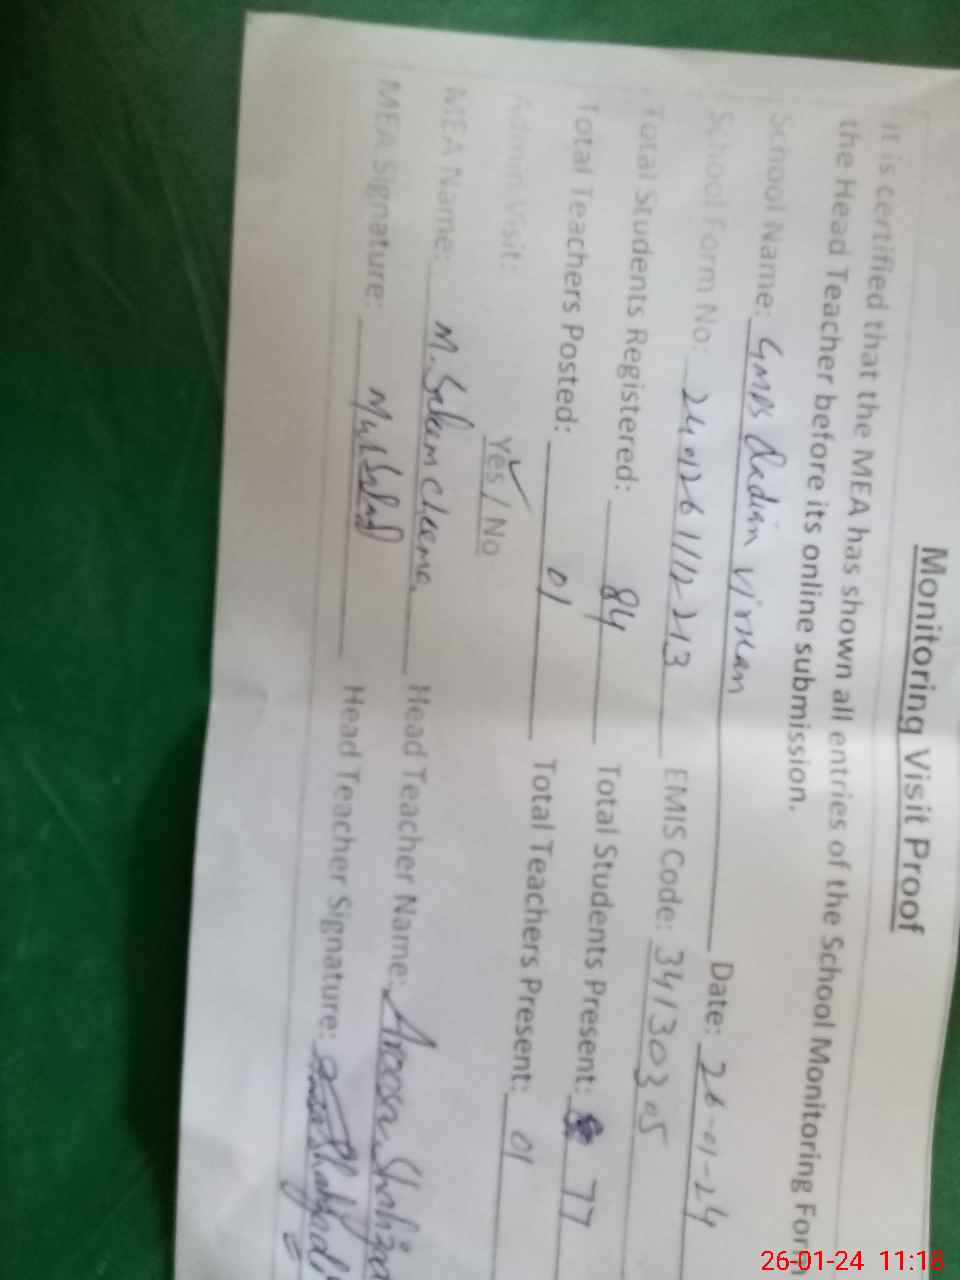 Monitoring Visit Proof
It is certified that the MEA has shown all entries of the School Monitoring Form
the Head Teacher before its online submission.
School Name: GMPS Virkan Date: 26-01-24
School Form No: EMIS Code: 34130305
Total Students Registered: 84 Total Students Present: 77
Total Teachers Posted: 01 Total Teachers Present: 01
Admin Visit: Yes / No
MEA Name: M. Saleem Cheema Head Teacher Name: Aroosa Shahzad
MEA Signature: Head Teacher Signature:
26-01-24 11:18